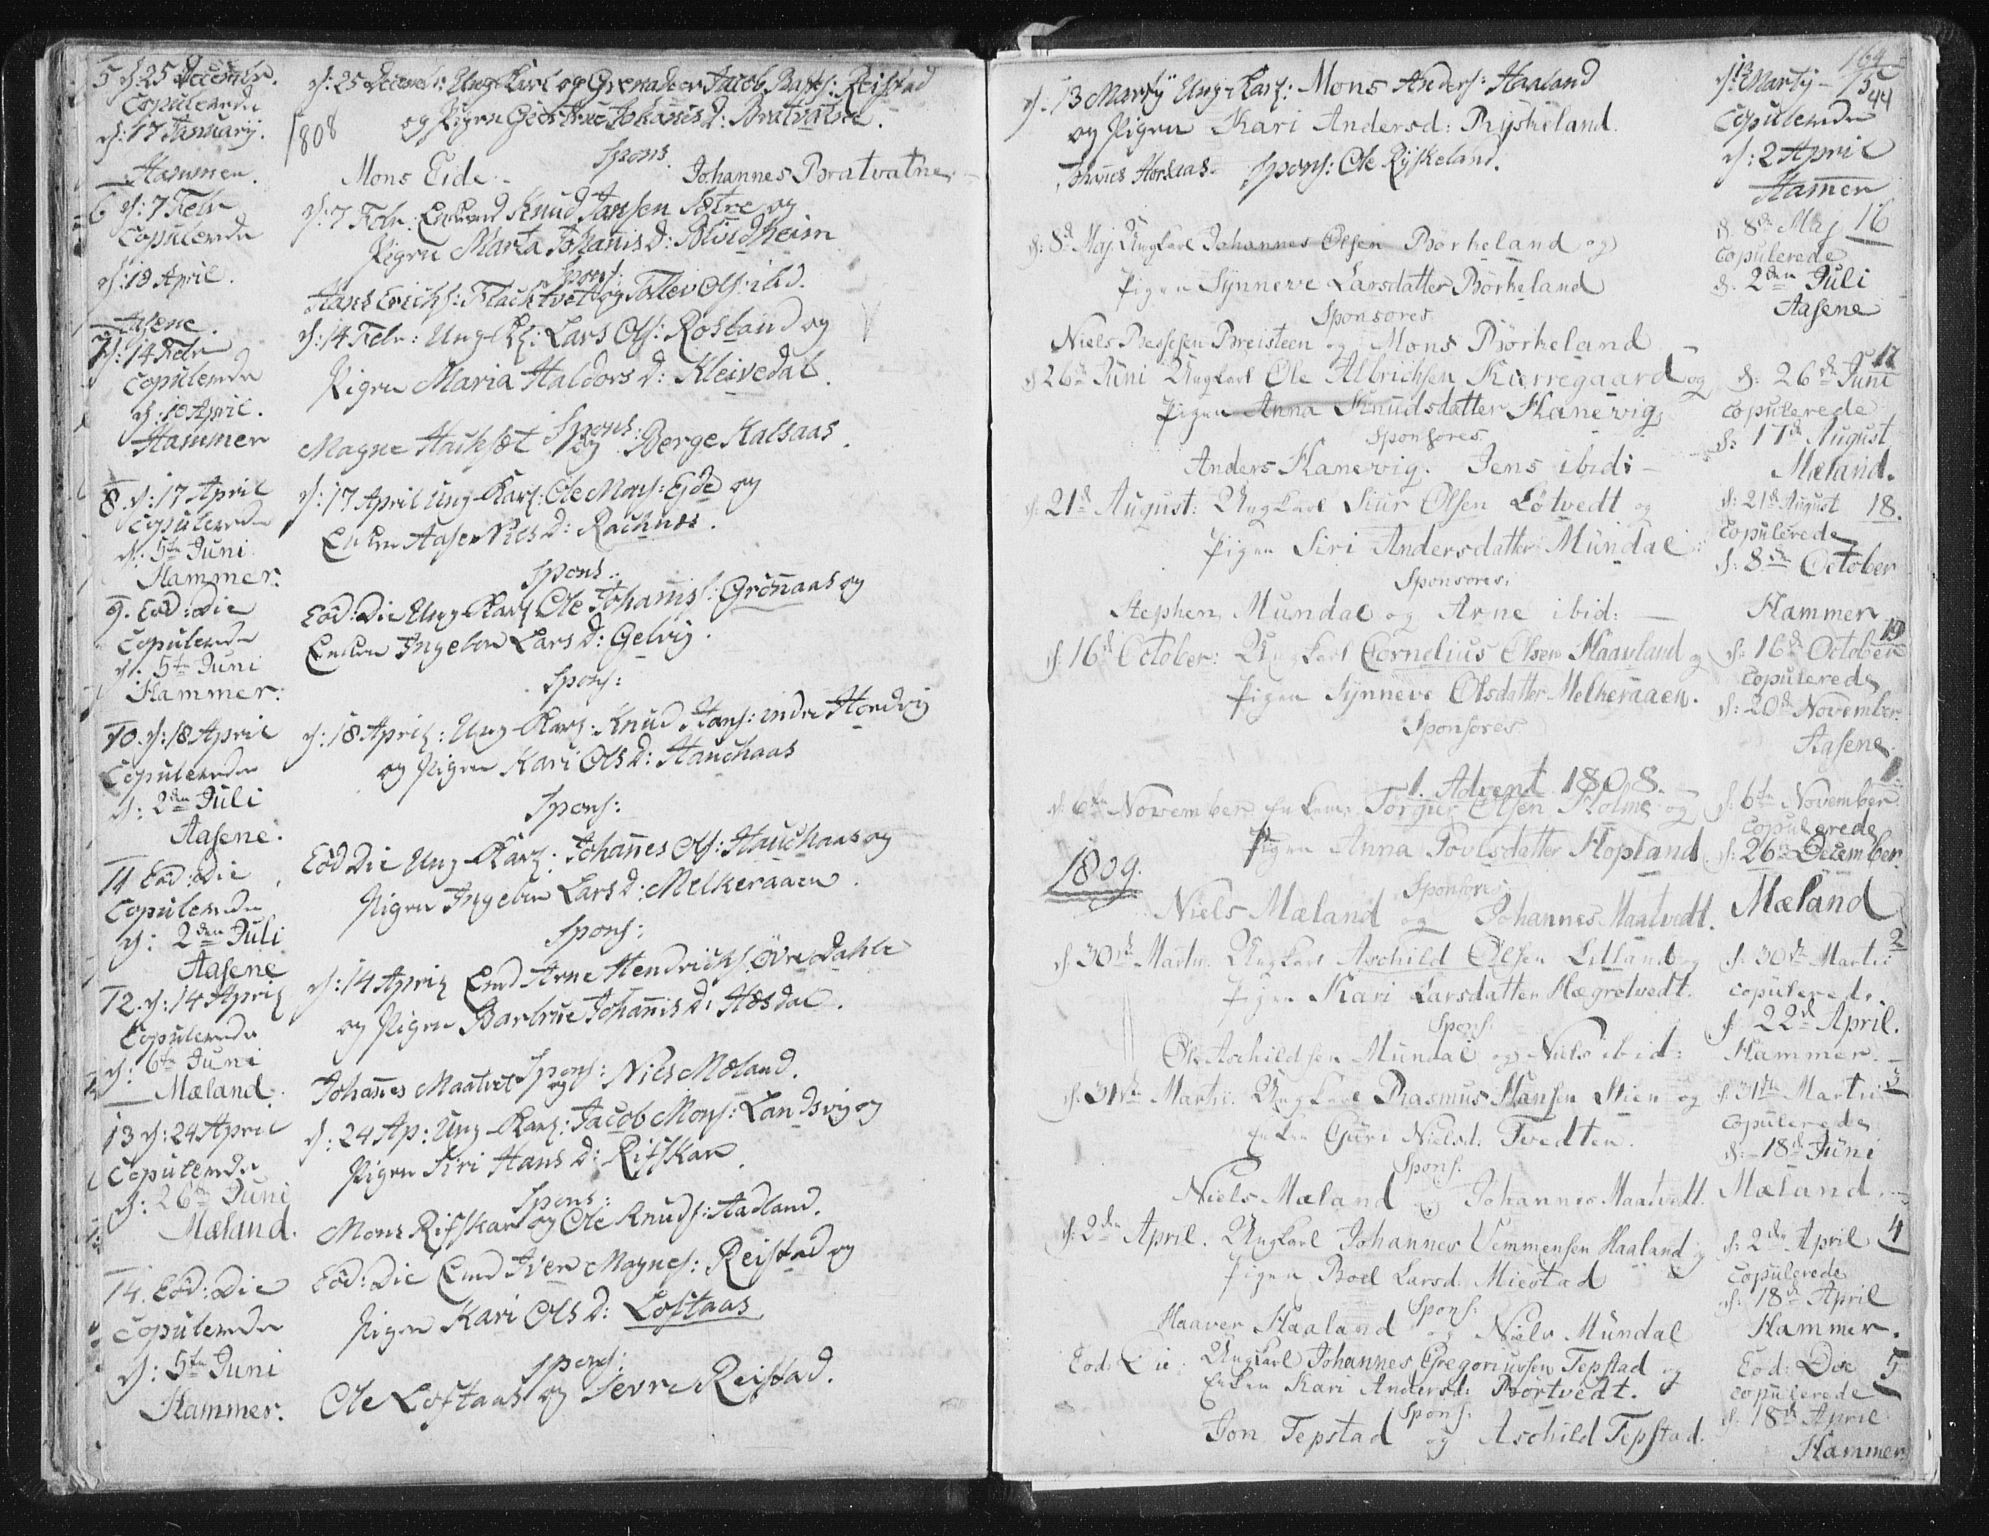 5 d: 25 Decembr.
Copulerede
d: 17 Januarij.
Hammer.
6 d: 7 Febr
Copulerede
d: 18 April.
Aasene.
7 d: 14 Febr
Copulerede
d: 10 April.
Hammer
8. d: 17 April
Copulerede
d: 5te Juni
Hammer.
9. Eod: Die
Copulerede
d: 5te Juni
Hammer.
10. d: 18 April
Copulerede
d: 2den Juli
Aasene.
11 Eod: Die
Copulerede
d: 2den Juli
Aasene
12. d: 14 April
Copulerede
d: 6te Juni
Mæland.
13 d: 24 April
Copulerede
d: 26de Juni
Mæland.
14. Eod: Die
Copulerede
d: 5te Juni
Hammer.
d: 25 Decembr: Ung Karl og Grenadeer Jacob Reistad
1808 og Pigen Giertrue Johanisd: Bratvatne.
Spons.
Mons Eide - Johannes Bratvatne
d: 7 Febr. Knud Jansen Sætre og
Pigen Marta Johanisd: Blindheim
Spons:
Hans Erichs: Flachtvet og Tollev Ols: ibid.
d: 14 Febr: Ung K: Lars Ols: Rosland og
Pigen Maria Haldorsd: Kleivedal.
Spons:
Magne og Berge Kalsaas.
d: 17 April Ung Karl: Ole Mons: Eide og
Enken Aase Nilsd: Rachnes.
Spons:
Eod: Die Ung Karl Ole Johanis: Grönaas og
Enken Ingebor Larsd: Gelvig.
Spons:
d: 18 April: Ung Karl: Knud Hans: indre Hordvig
og Pigen Kari Olsd: Hauchaas
Spons:
Eod Die Ung Karl: Johannes Ols: Hauchaas og
Pigen Ingebor Larsd: Melkeraaen.
Spons:
d: 14 April Emd Arne Hendrichs: övre Dahle
og Pigen Barbrue Johanisd: Hæsdal.
Spons:
Johanes Maatvet og Niels Mæland.
d: 24 Ap: Ung Karl: Jacob Mons: Landsvig og
Pigen Siri Hansd: Rifskar
Spons:
Mons Rifskar og Ole Knuds: Aadland.
Eod: Die Emd Iver Magnes: Reistad og
Pigen Kari Olsd: Loftaas
Spons:
Ole Loftaas og Sevre Reistad.
164
d: 13 Martij Ung Karl: Mons Anders: Haaland
og Pigen Kari Andersd: Ryskeland.
Spons: Ole Ryskeland.
d: 8de Maj Ungkarl Johannes Olsen Börkeland og
Pigen Synneve Larsdatter Börkeland
Sponsores
Niels Breisteen og Mons Börkeland
d 26de Juni Ungkarl Ole Albrichsen Kierregaard og
Pigen Anna Knudsdatter Hanevig
Sponsores
Anders Hanevig. Jens ibid: -
d: 21de August: Ungkarl Siur Olsen Lötvedt og
Pigen Siri Andersdatter Mundal:
Sponsores.
Stephen Mundal og Arne ibid:
d: 16de October: Ungkarl Cornelius Olsen Haauland og
Pigen Synneve Olsdatter Melkeraaen.
Sponsores
1. Advent 1808.
d: 6te November Enkem: Torgier Olsen Holme og
Pigen Anna Povlsdatter Hopland
1809.
Sponsores
Niels Mæland og Johannes Maatvedt.
d 30te Martii Ungkarl Aschild Olsen Litland og
Pigen Kari Larsdatter Hægretvedt.
Spons.
Ole Aschildsen Mundal og Niels ibid:
d. 31te Martii. Ungkarl Rasmus Hansen Stien og
Enken Guri Nielsd: Tvedten.
Spons.
Niels Mæland og Johannes Maatvedt.
d: 2den April. Ungkarl Johannes Vemmensen Haaland og
Pigen Boel Larsd. Miestad
Spons.
Haaver Haaland og Niels Mundal
Eod: Die: Ungkarl Johannes Gregoriussen Tepstad og
Enken Kari Andersd: Börtvedt.
Spons.
Jon Tepstad og Aschild Tepstad.
d: 13 Martij - 15
44
Copulerede
d: 2 April
Hamer
d. 8de Maj 16
Copulerede
d. 2den Juli
Aasene
17
d: 26de Juni
Copulerede
d: 17de August
Mæland.
d: 21de August 18.
Copulerede
d: 8de October
Hammer
19
d: 16de October
Copulerede
d: 20de November
Aasene
1.
d: 6te November
Copulerede
d: 26de December.
Mæland
2
d. 30te Martii
Copulerede.
d 22de April.
Hammer.
d. 31te Martii 3
Copulerede
d: 18de Juni
Mæland.
d: 2den April 4
Copulerede
d: 18de April
Hammer.
Eod: Die 5
Copulerede
d. 18de April
Hammer